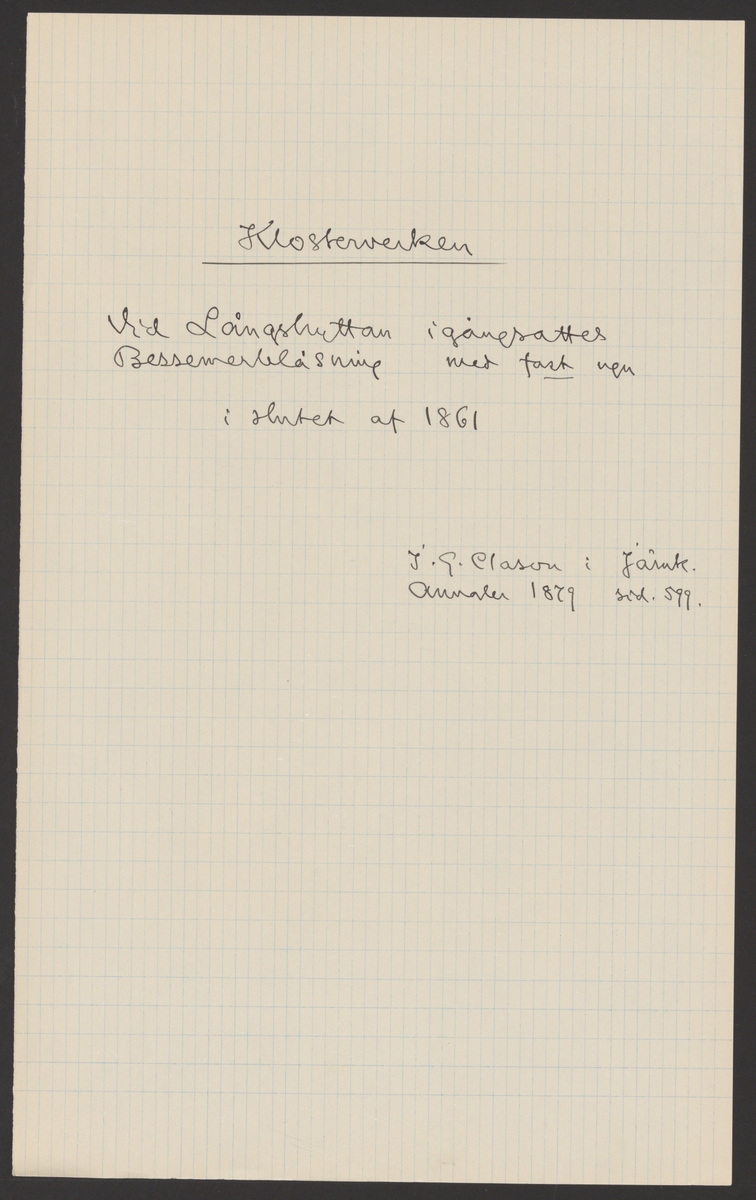 Klosterverken
Vid Långshyttan igångsattes
Bessemerblåsning med fast ugn
i slutet af 1861
J. G. Clason i Järnk.
Annaler 1879 sid. 599.